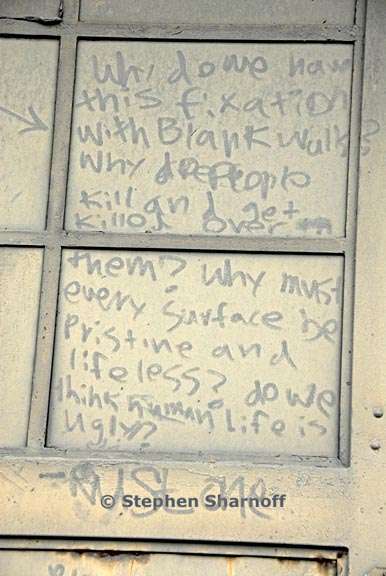 Why do we have
this fixation
with Blank walls?
Why do People
kill and get
killed over
them? Why must
every surface be
Pristine and
lifeless? do we
think human life is
Ugly?
- RUST one
© Stephen Sharnoff